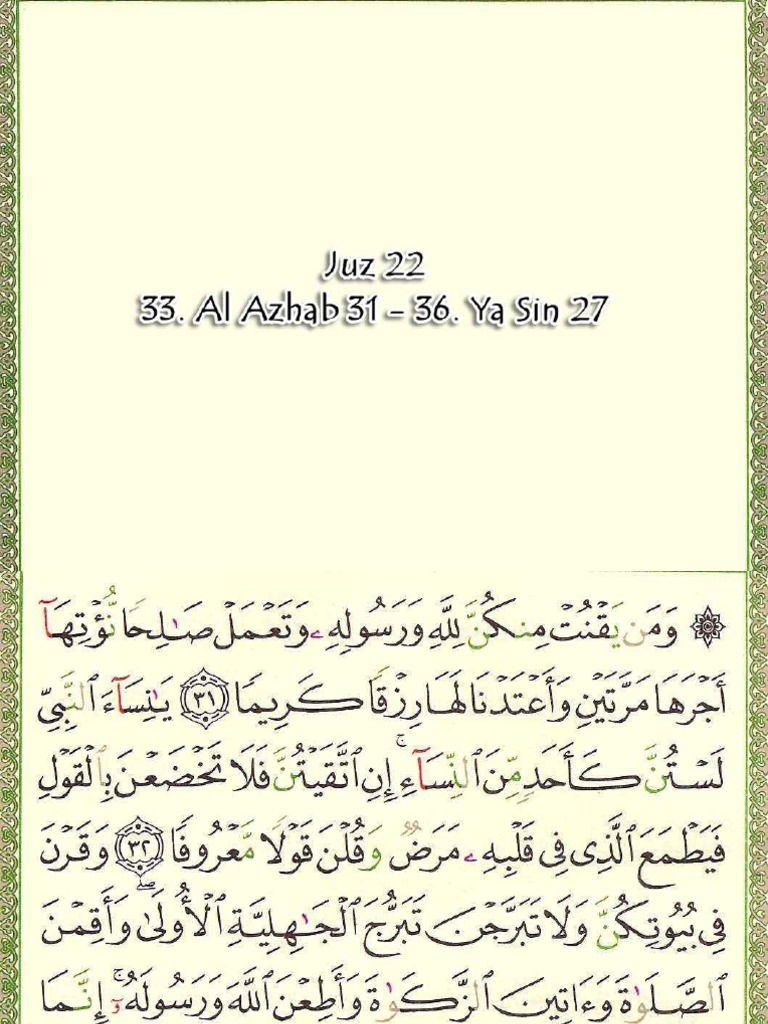 Juz 22
33. Al Azhab 31 - 36. Ya Sin 27
۞ وَمَن يَقْنُتْ مِنكُنَّ لِلَّهِ وَرَسُولِهِۦ وَتَعْمَلْ صَٰلِحًا نُّؤْتِهَآ
أَجْرَهَا مَرَّتَيْنِ وَأَعْتَدْنَا لَهَا رِزْقًا كَرِيمًا ﴿٣١﴾ يَٰنِسَآءَ ٱلنَّبِيِّ
لَسْتُنَّ كَأَحَدٍ مِّنَ ٱلنِّسَآءِ ۚ إِنِ ٱتَّقَيْتُنَّ فَلَا تَخْضَعْنَ بِٱلْقَوْلِ
فَيَطْمَعَ ٱلَّذِى فِى قَلْبِهِۦ مَرَضٌ وَقُلْنَ قَوْلًا مَّعْرُوفًا ﴿٣٢﴾ وَقَرْنَ
فِى بُيُوتِكُنَّ وَلَا تَبَرَّجْنَ تَبَرُّجَ ٱلْجَٰهِلِيَّةِ ٱلْأُولَىٰ ۖ وَأَقِمْنَ
ٱلصَّلَوٰةَ وَءَاتِينَ ٱلزَّكَوٰةَ وَأَطِعْنَ ٱللَّهَ وَرَسُولَهُۥٓ ۚ إِنَّمَا